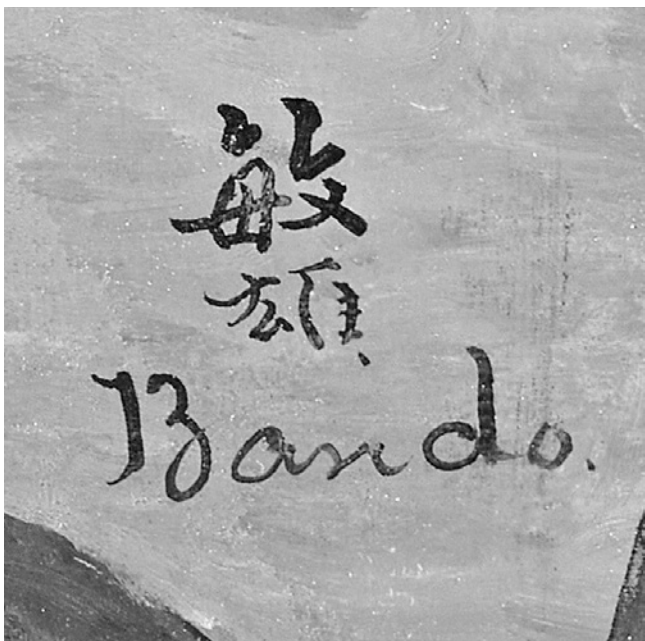 敏
雄
Bando.